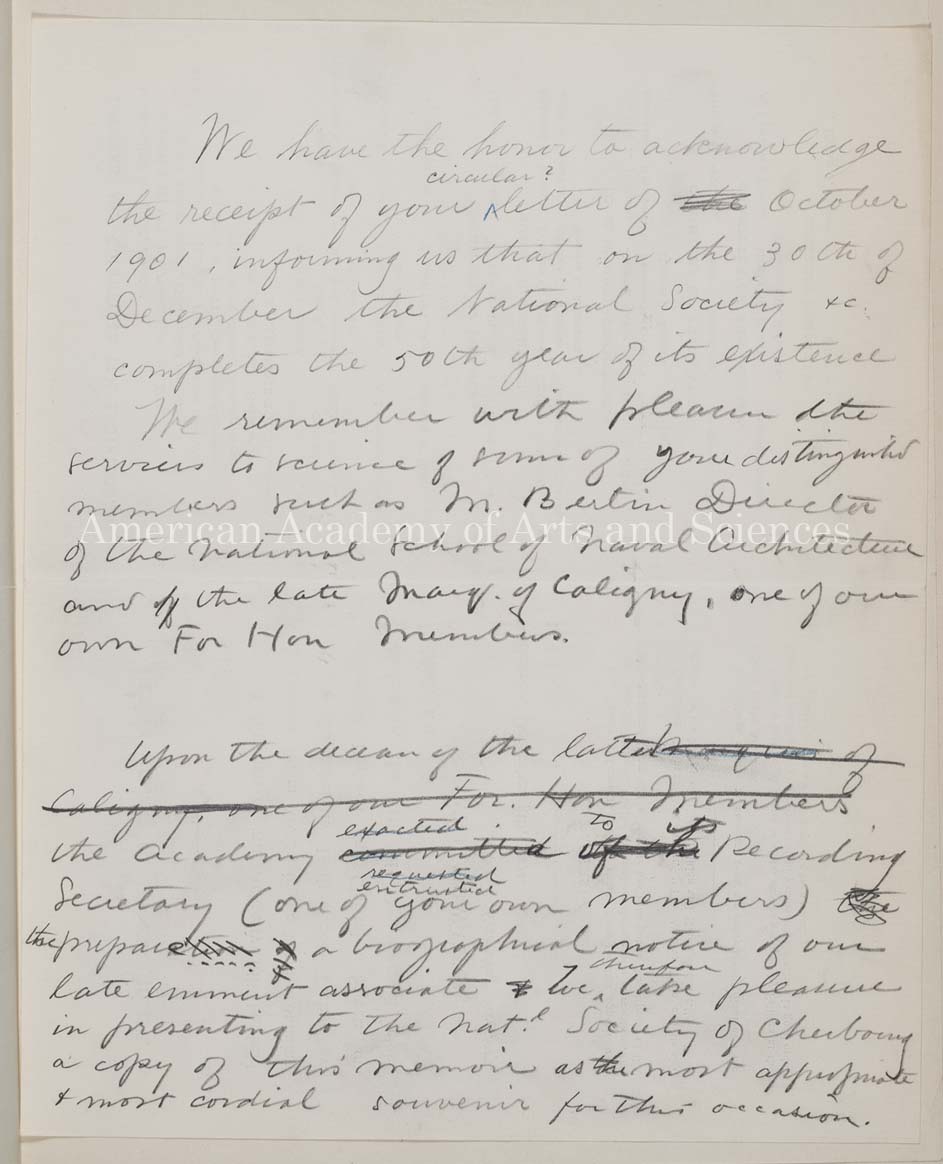 We have the honor to acknowledge
circular?
the receipt of your letter of the October
1901, informing us that on the 30th of
December the National Society &c.
completes the 50th year of its existence
We remember with pleasure the
services to science of some of your distinguished
members such as M. Bertin Director
American Academy of Arts and Sciences
of the National School of Naval Architecture
and of the late Marq. of Caligny, one of our
own For Hon Members.
Upon the decease of the latter Marquis of
Caligny, one of our For. Hon Members
exacted to its
the Academy committed of the Recording
requested
entrusted
Secretary (one of your own members) the
the preparation of a biographical notice of our
therefore
late eminent associate & we take pleasure
in presenting to the Nat.l Society of Cherbourg
a copy of this memoir as the most appropriate
& most cordial souvenir for this occasion.